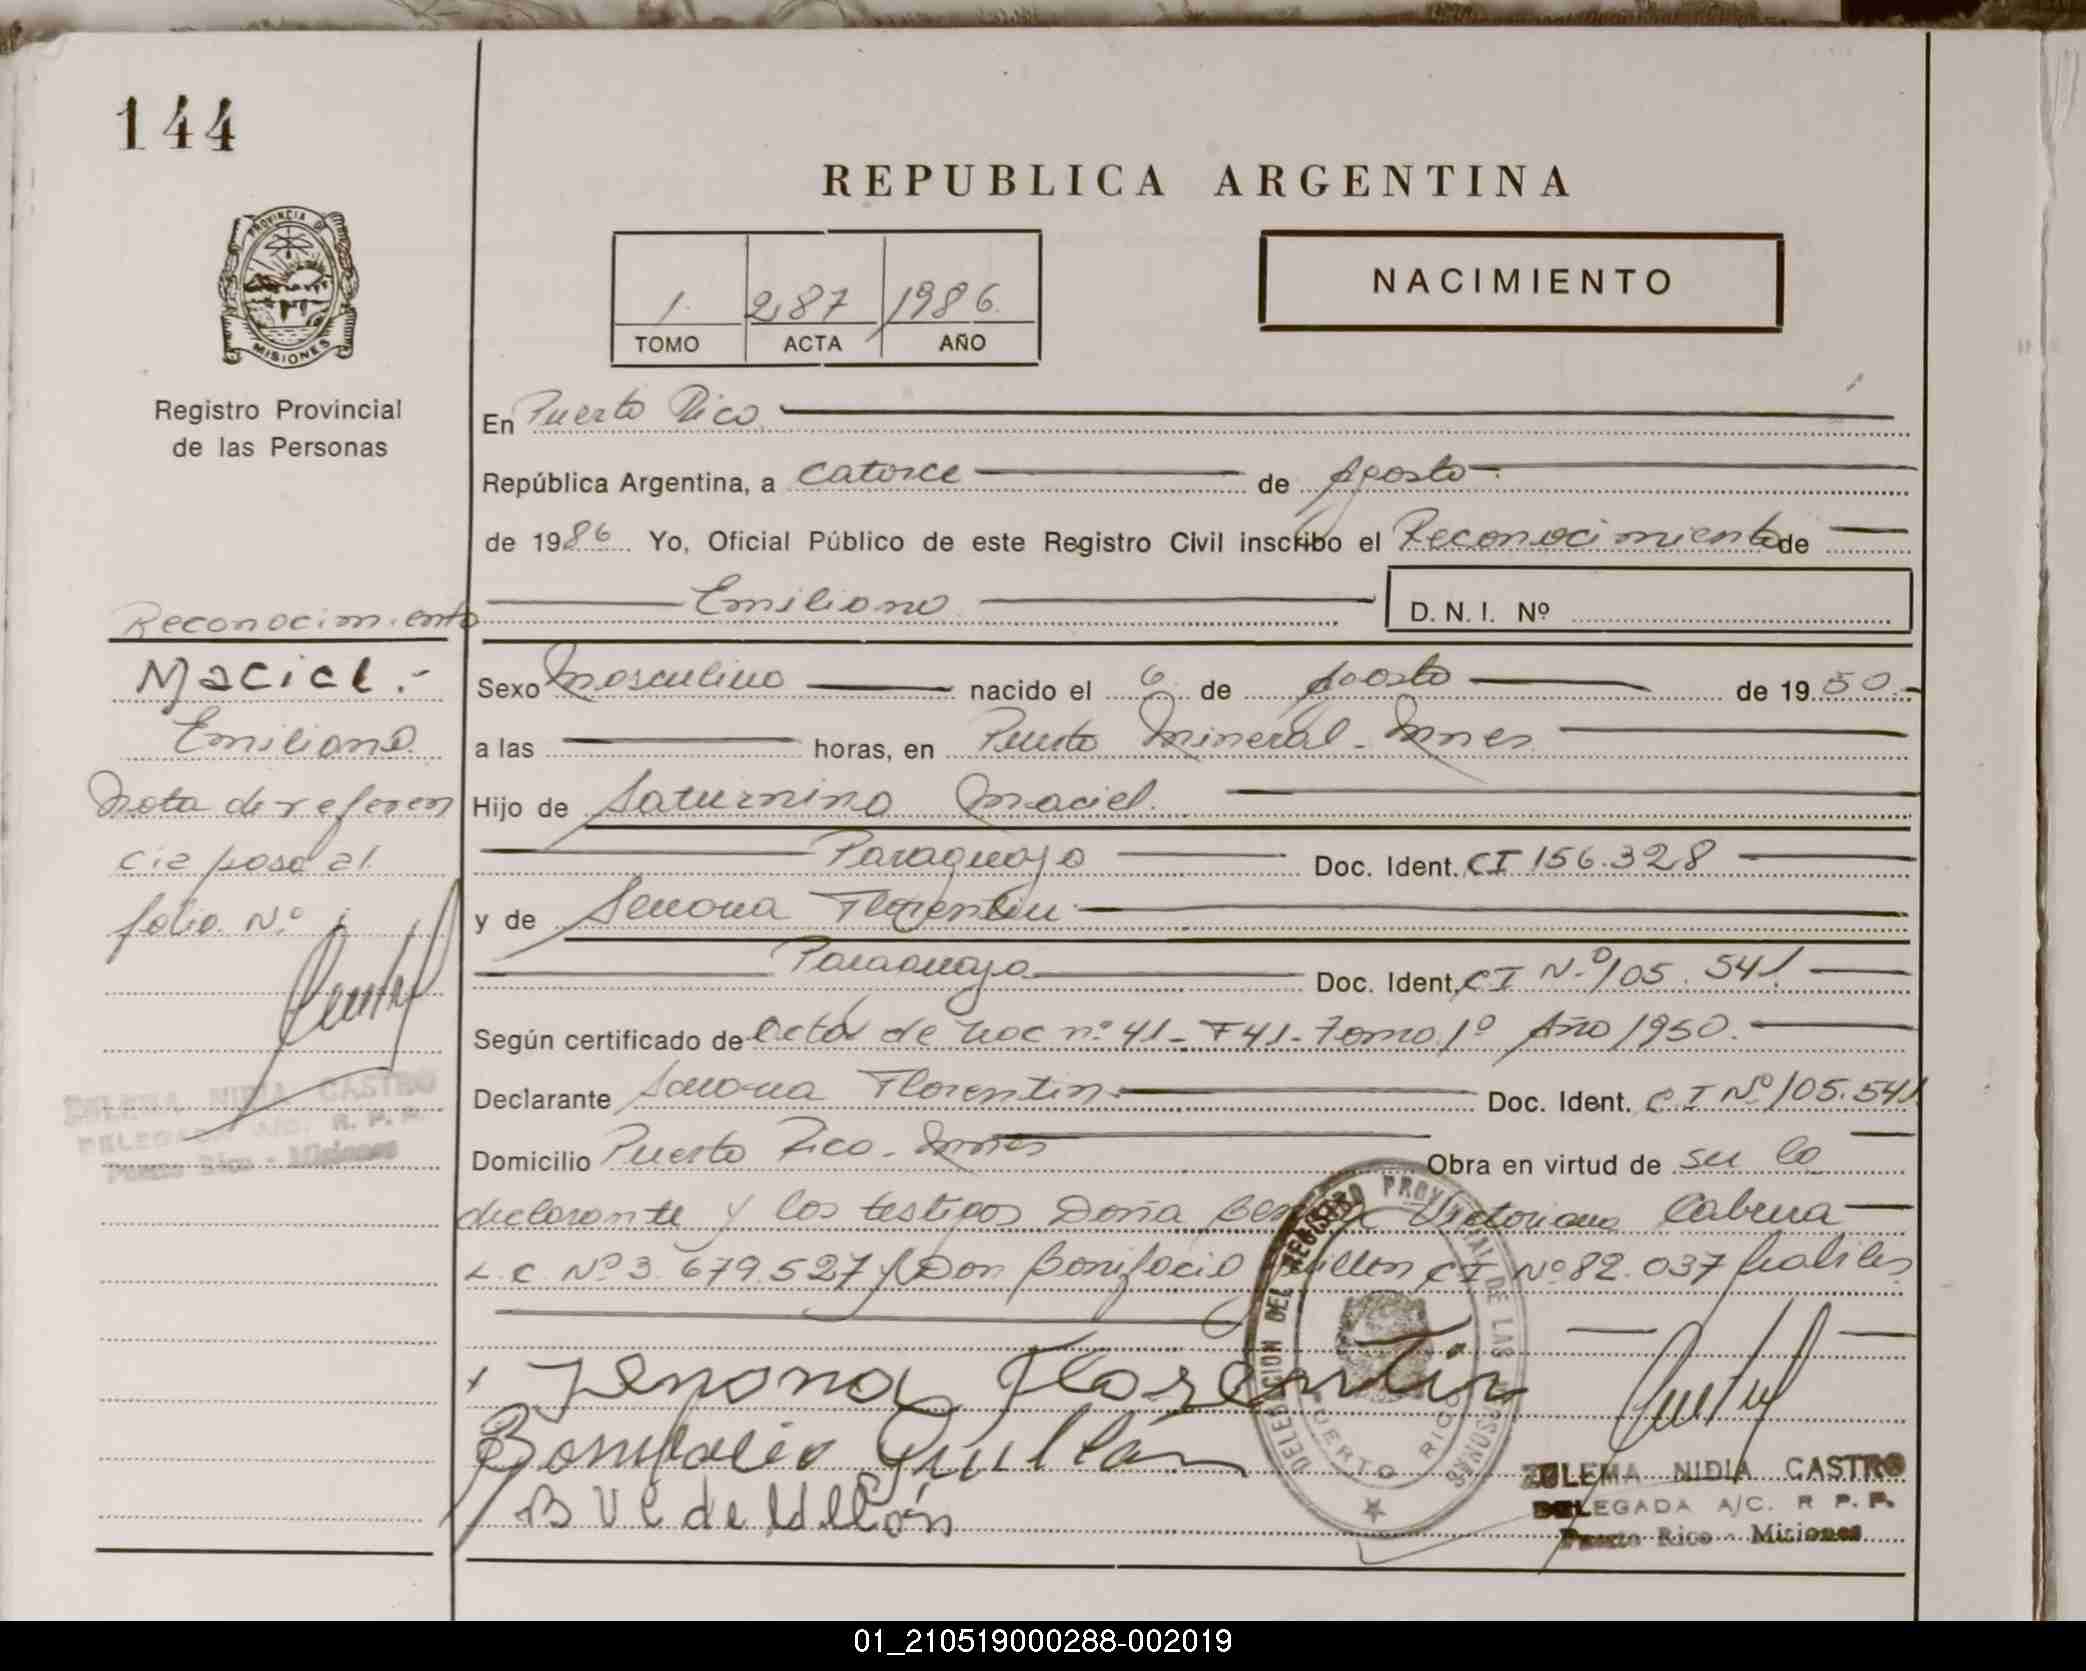 144
REPUBLICA ARGENTINA
PROVINCIA DE
MISIONES
Registro Provincial
de las Personas
1. 287 1986.
TOMO ACTA AÑO
NACIMIENTO
En Puerto Rico
República Argentina, a catorce de Agosto
de 1986 Yo, Oficial Público de este Registro Civil inscribo el Reconocimiento de
Emiliano
D. N. I. Nº
Reconocimiento
Maciel.-
Emiliano
Nota de referen
cia pasa al
folio Nº
ZULEMA NIDIA CASTRO
DELEGADA A/C. R. P. P.
Puerto Rico - Misiones
Sexo Masculino nacido el 6 de Agosto de 1950
a las horas, en Puerto Mineral - Mnes
Hijo de Saturnino Maciel.
Paraguayo Doc. Ident. CI 156.328
y de Zenona Florentin
Paraguaya Doc. Ident. CI Nº 105.541
Según certificado de Acta de nac nº 41 - F 41 - Tomo 1º Año 1950.
Declarante Zenona Florentin Doc. Ident. C I Nº 105.541
Domicilio Puerto Rico - Mnes Obra en virtud de su la
declarante y los testigos Doña Victoriana Cabrera
L.C Nº 3.679.527 y Don Bonifacio CI Nº 82.037 habiles
Zenona Florentin
Bonifacio
B V C de
DELEGACION DEL REGISTRO PROVINCIAL DE LAS PERSONAS
PUERTO RICO
ZULEMA NIDIA CASTRO
DELEGADA A/C. R. P. P.
Puerto Rico - Misiones
01_210519000288-002019